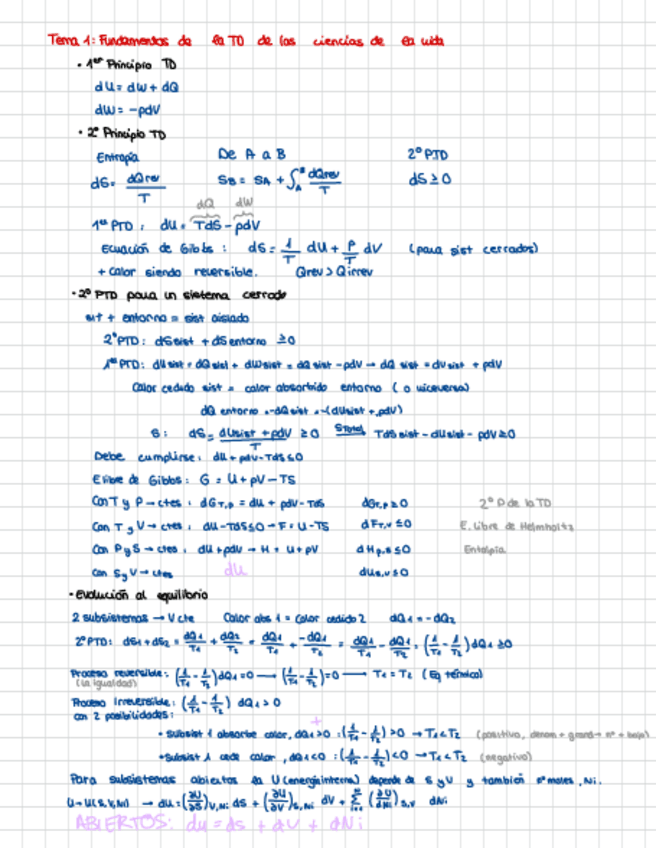 Tema 1: Fundamentos de la TD de las ciencias de la vida
• 1er Principio TD
dU = dW + dQ
dW = -pdV
• 2º Principio TD
Entropía De A a B 2º PTD
dS = dQrev/T SB = SA + ∫_A^B dQrev/T dS ≥ 0
dQ dW
1er PTD: dU = TdS - pdV
Ecuación de Gibbs: dS = 1/T dU + P/T dV (para sist cerrados)
+ Calor siendo reversible. Qrev > Qirrev
• 2º PTD para un sistema cerrado
sist + entorno = sist aislado
2º PTD: dSsist + dSentorno ≥ 0
1er PTD: dUsist = dQsist + dWsist = dQsist - pdV → dQsist = dUsist + pdV
Calor cedido sist = calor absorbido entorno (o viceversa)
dQ entorno = -dQsist = -(dUsist + pdV)
S: dS = dUsist + pdV/T ≥ 0 STotal TdSsist - dUsist - pdV ≥ 0
Debe cumplirse: dU + pdV - TdS ≤ 0
E libre de Gibbs: G = U + pV - TS
Con T y P → ctes: dGT,P = dU + pdV - TdS dGT,P ≥ 0 2º P de la TD
Con T y V → ctes: dU - TdS ≤ 0 → F = U - TS dFT,V ≤ 0 E. libre de Helmholtz
Con P y S → ctes: dU + pdV → H = U + pV dHP,S ≤ 0 Entalpía
Con S y V → ctes dU dUS,V ≤ 0
• Evolución al equilibrio
2 subsistemas → V cte Calor abs 1 = Calor cedido 2 dQ1 = -dQ2
2º PTD: dS1 + dS2 = dQ1/T1 + dQ2/T2 = dQ1/T1 + -dQ1/T2 = dQ1/T1 - dQ1/T2 = (1/T1 - 1/T2) dQ1 ≥ 0
Proceso reversible: (1/T1 - 1/T2) dQ1 = 0 → (1/T1 - 1/T2) = 0 → T1 = T2 (Eq térmico)
(la igualdad)
Proceso irreversible: (1/T1 - 1/T2) dQ1 > 0
con 2 posibilidades:
+
• Subsist 1 absorbe calor, dQ1 > 0: (1/T1 - 1/T2) > 0 → T1 < T2 (positivo, denom + grand → nº + bajo)
• Subsist 1 cede calor, dQ1 < 0: (1/T1 - 1/T2) < 0 → T1 < T2 (negativo)
Para subsistemas abiertos la U (energía interna) depende de S y V y también nº moles, Ni.
U = U(S,V,Ni) → dU = (∂U/∂S)V,Ni dS + (∂U/∂V)S,Ni dV + Σ (∂U/∂Ni)S,V dNi
ABIERTOS: du = ds + dV + dNi